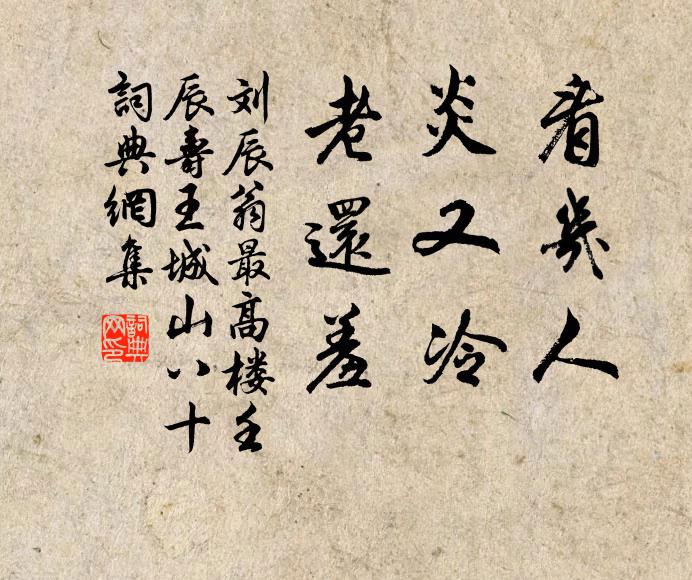 看幾人
炎又冷
老還羞
刘辰翁最高楼壬
辰壽王城山八十
詞典網集
詞典
网印